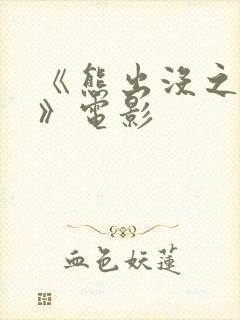 《熊出没之
》电影
血色妖莲